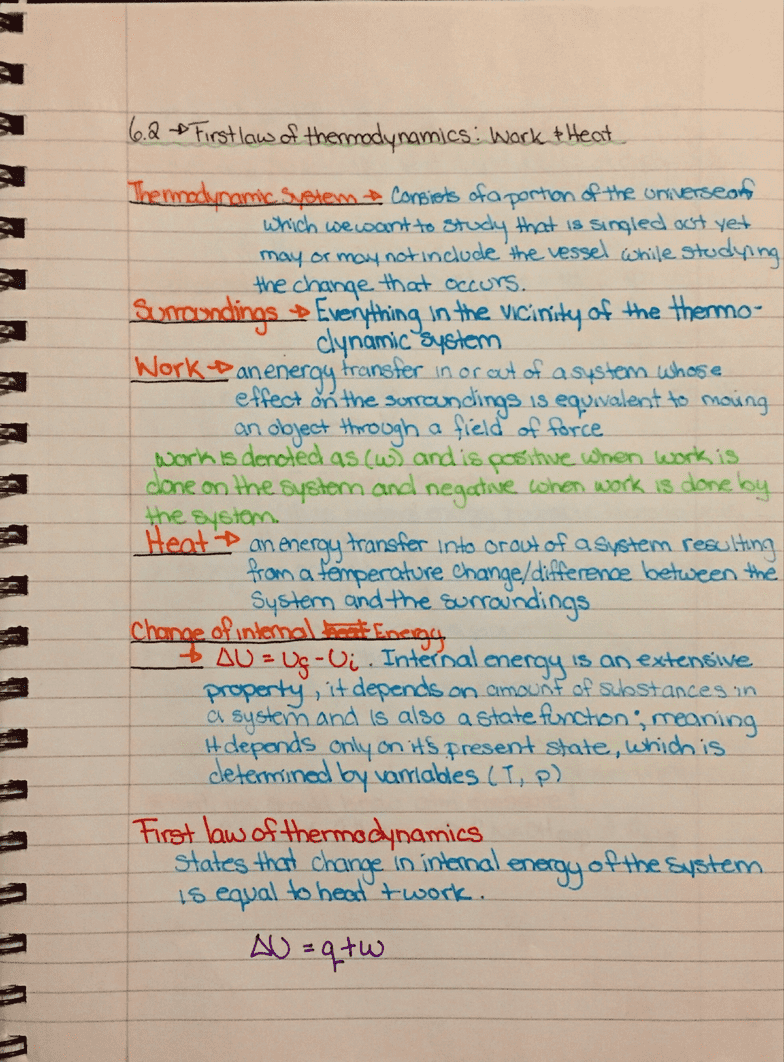 6.2 → First law of thermodynamics: Work + Heat
Thermodynamic System → Consists of a portion of the universe of
which we want to study that is singled out yet
may or may not include the vessel while studying
the change that occurs.
Surroundings → Everything in the vicinity of the thermo-
dynamic system
Work → an energy transfer in or out of a system whose
effect on the surroundings is equivalent to moving
an object through a field of force
work is denoted as (w) and is positive when work is
done on the system and negative when work is done by
the system.
Heat → an energy transfer into or out of a system resulting
from a temperature change/difference between the
System and the surroundings
Change of internal heat Energy
→ ΔU = Uf - Ui. Internal energy is an extensive
property, it depends on amount of substances in
a system and is also a state function; meaning
it depends only on it's present state, which is
determined by varriables (T, p)
First law of thermodynamics
states that change in internal energy of the system
is equal to heat + work.
ΔU = q + w